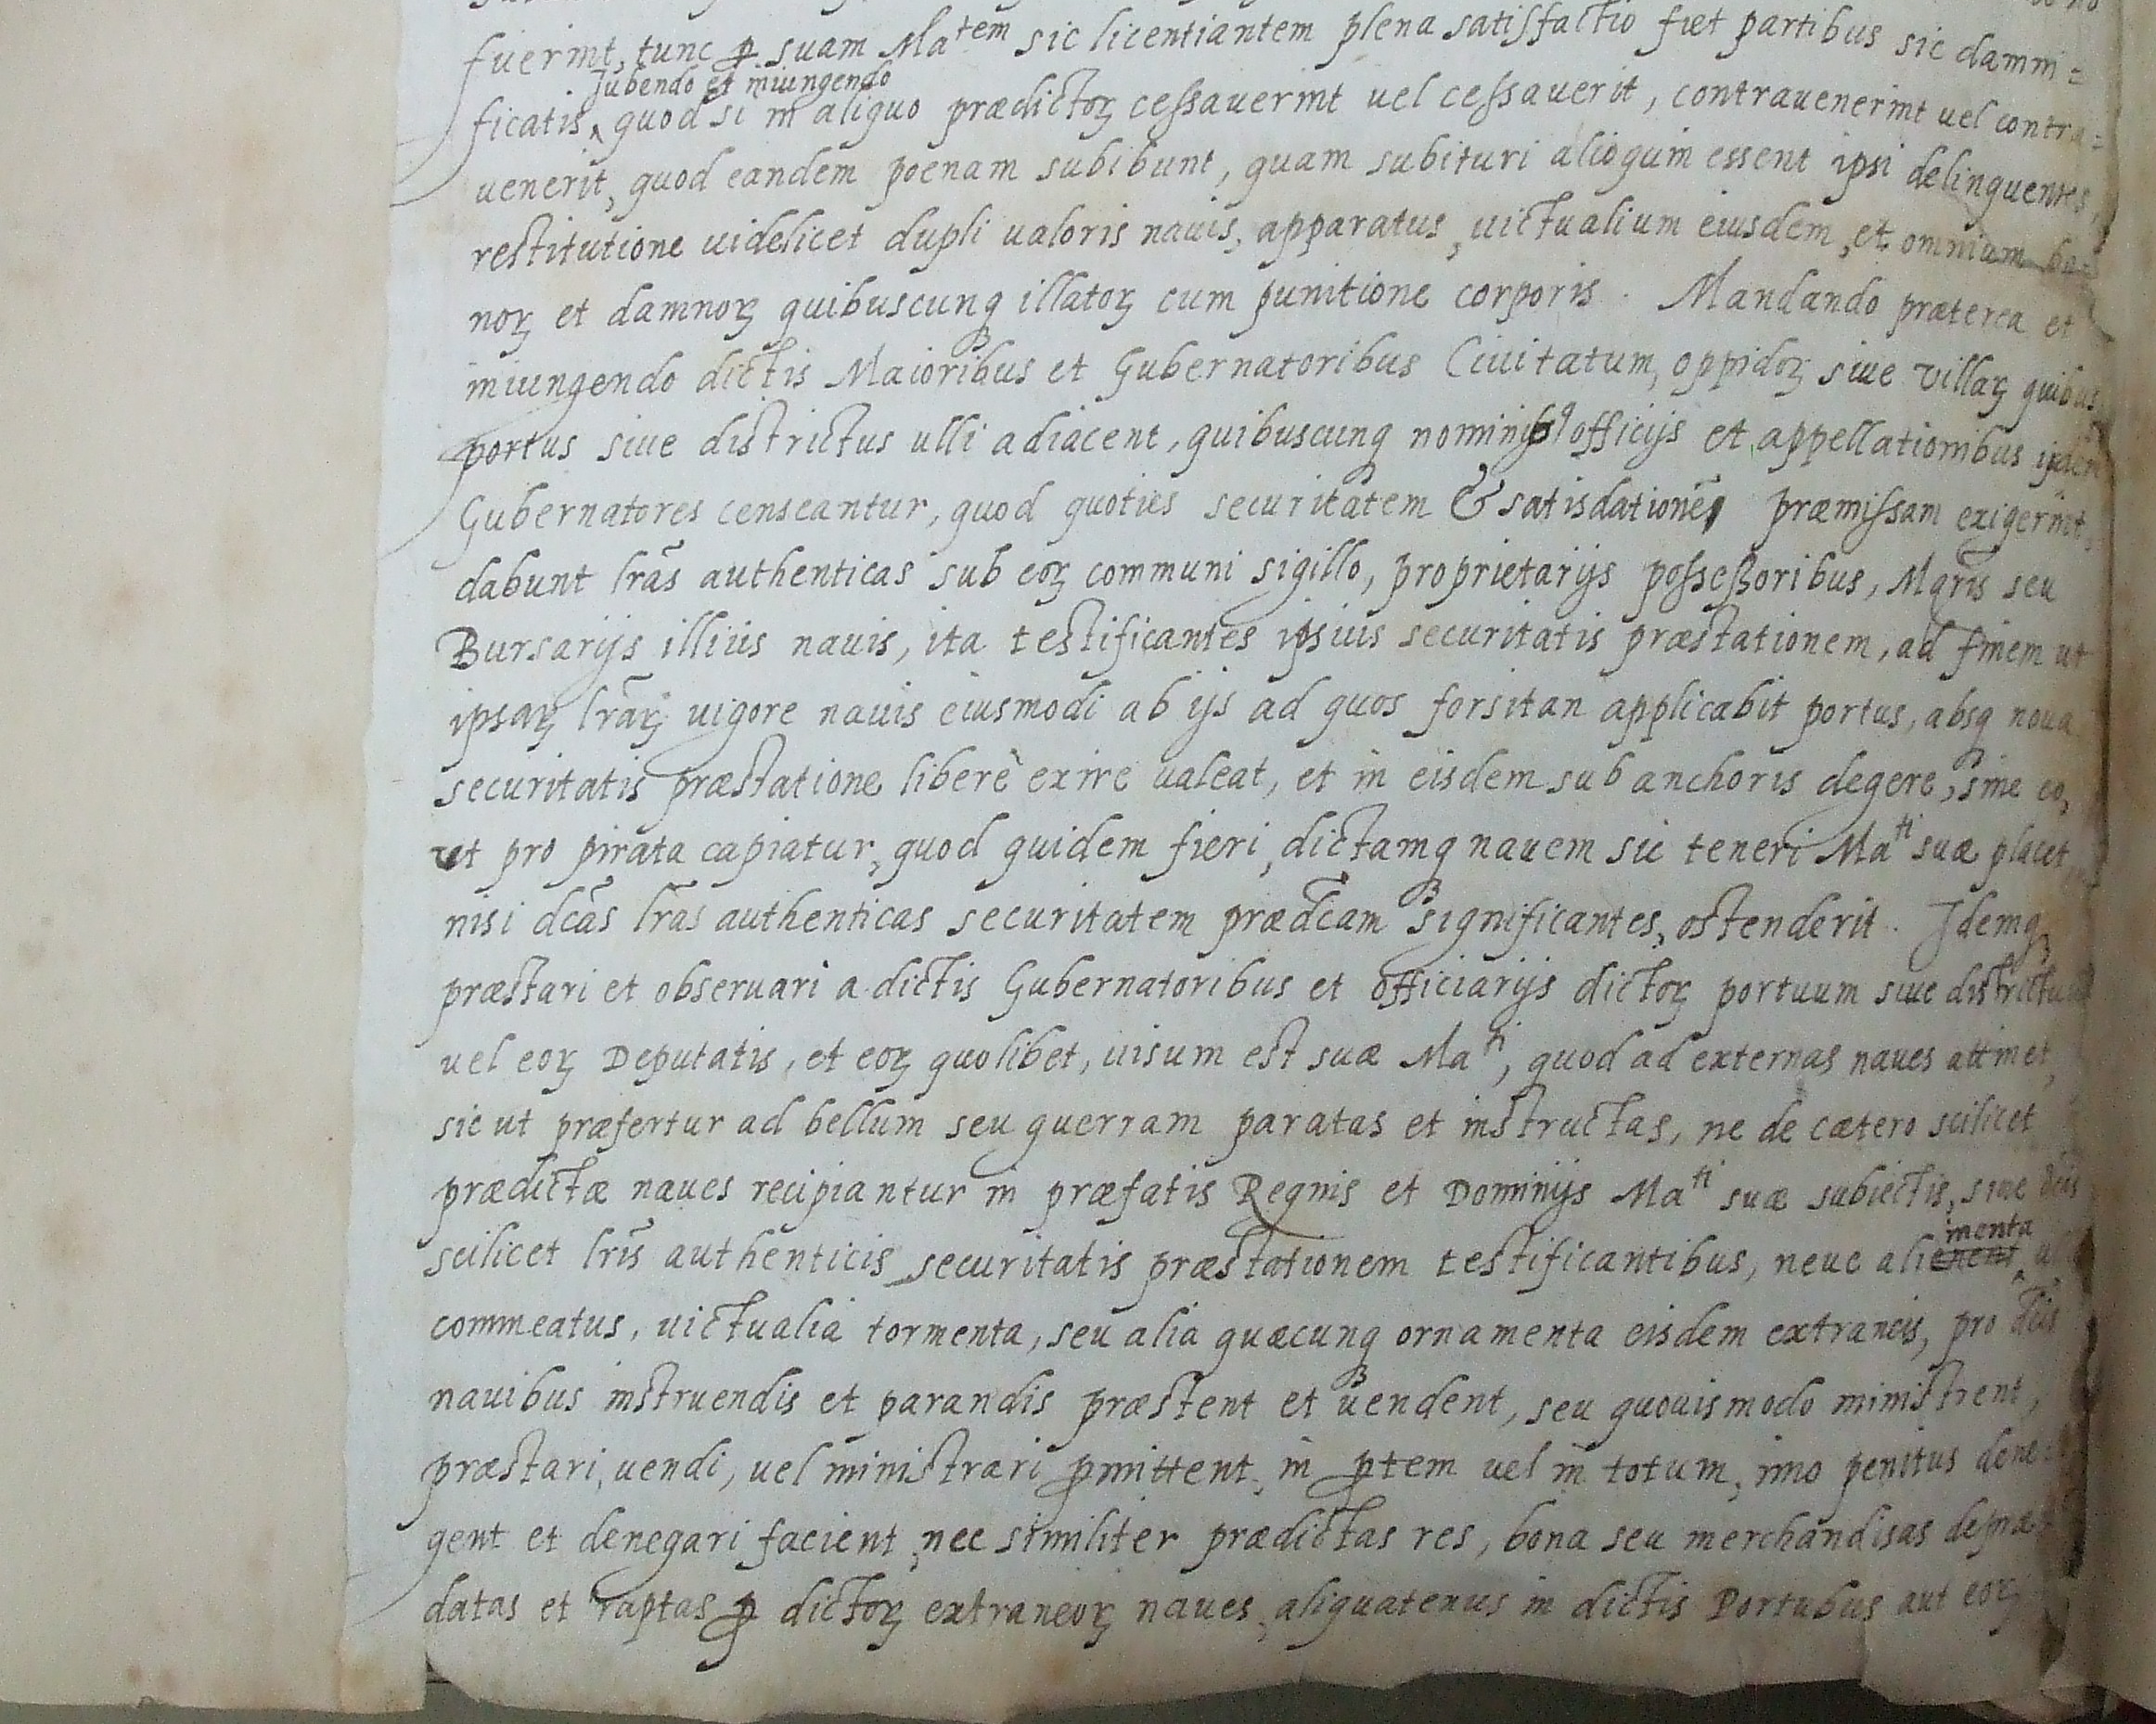 fuerint, tunc ꝑ suam Maᵗᵉᵐ sic licentiantem plena satisfactio fiet partibus sic damni=
Jubendo et iniungendo
ficatis ‸ quod si in aliquo prædictoꝝ cessauerint uel cessauerit, contrauenerint uel contra=
uenerit, quod eandem poenam subibunt, quam subituri alioquin essent ipsi delinquentes,
restitutione uidelicet dupli ualoris nauis, apparatus, uictualium eiusdem, et omnium bo=
noꝝ et damnoꝝ quibuscunqꝫ illatoꝝ cum punitione corporis. Mandando præterea et
iniungendo dictis Maioribus et Gubernatoribus Ciuitatum, oppidoꝝ siue villaꝝ quibus
portus siue districtus ulli adiacent, quibuscunqꝫ officijs et appellationibus
Gubernatores censeantur, quod quoties securitatem & satisdationē præmissam exigerint,
dabunt lr̃as authenticas sub eoꝝ communi sigillo, proprietarijs possessoribus, Mgr̃is seu
Bursarijs illius nauis, ita testificantes ipsius securitatis præstationem, ad finem ut
ipsaꝝ lr̃aꝝ uigore nauis eiusmodi ab ijs ad quos forsitan applicabit portus, absqꝫ noua
securitatis præstatione liberè exire ualeat, et in eisdem sub anchoris degere, sine eo,
ut pro pirata capiatur, quod quidem fieri, dictamqꝫ nauem sic teneri Maᵗⁱ suæ placet,
nisi dc̃as lr̃as authenticas securitatem prædc̃am significantes, ostenderit. Idemqꝫ
præstari et obseruari a dictis Gubernatoribus et officiarijs dictoꝝ portuum siue districtuum
uel eoꝝ Deputatis, et eoꝝ quolibet, uisum est suæ Maᵗⁱ, quod ad externas naues attinet,
sic ut præfertur ad bellum seu guerram paratas et instructas, ne de cætero scilicet
prædictæ naues recipiantur in præfatis Regnis et Dominijs Maᵗⁱ suæ subiectis, sine dc̃is
scilicet lr̃is authenticis securitatis præstationem testificantibus, neue alienent
menta
commeatus, uictualia tormenta, seu alia quæcunqꝫ ornamenta eisdem extraneis, pro dc̃is
nauibus instruendis et parandis præstent et uendent, seu quouismodo ministrent,
præstari, uendi, uel ministrari ꝑmittent, in ꝑtem uel in totum, imo penitus dene=
gent et denegari facient, nec similiter prædictas res, bona seu merchandisas depræ=
datas et raptas ꝑ dictoꝝ extraneoꝝ naues, aliquatenus in dictis Portubus aut eoꝝ